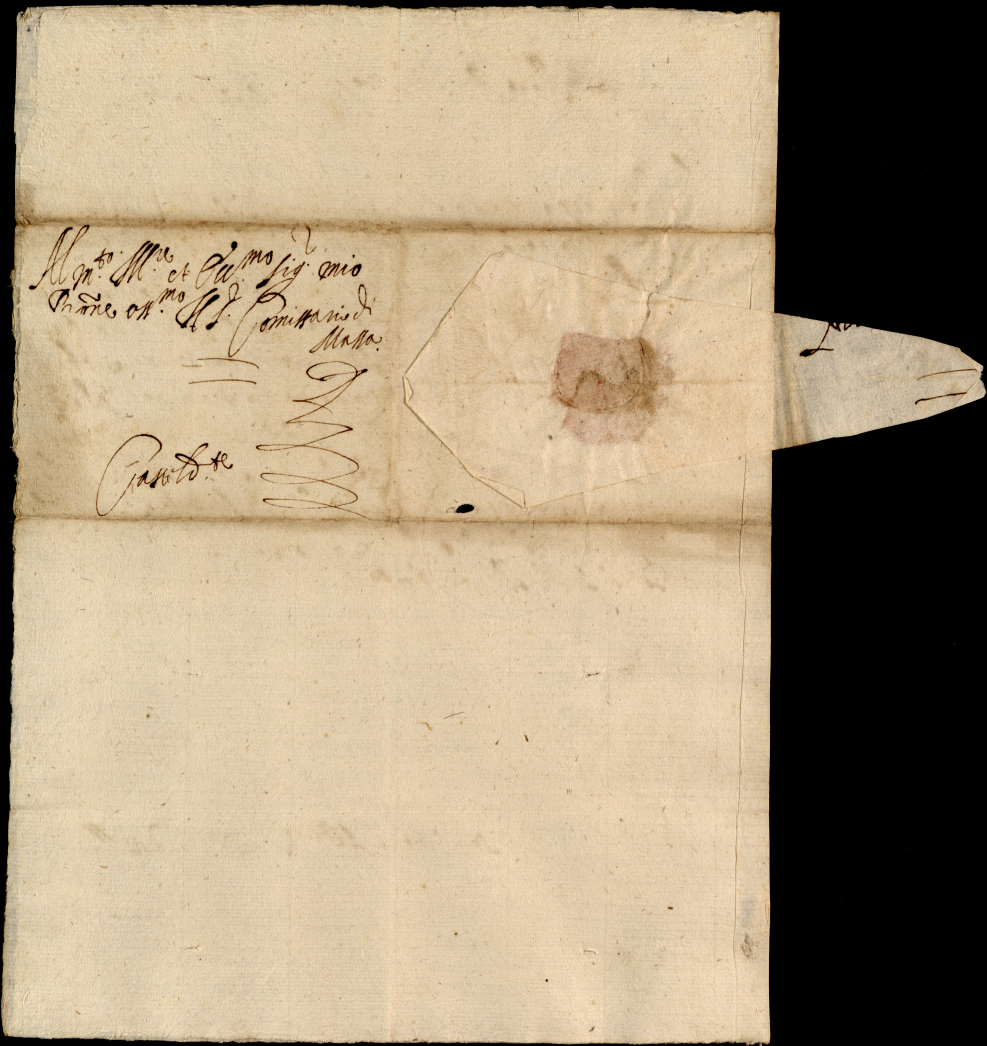 Al m.to Ill.re et Ecc.mo Sig.r mio
Pron̄e oss.mo Il S.r Comissario di
Massa.